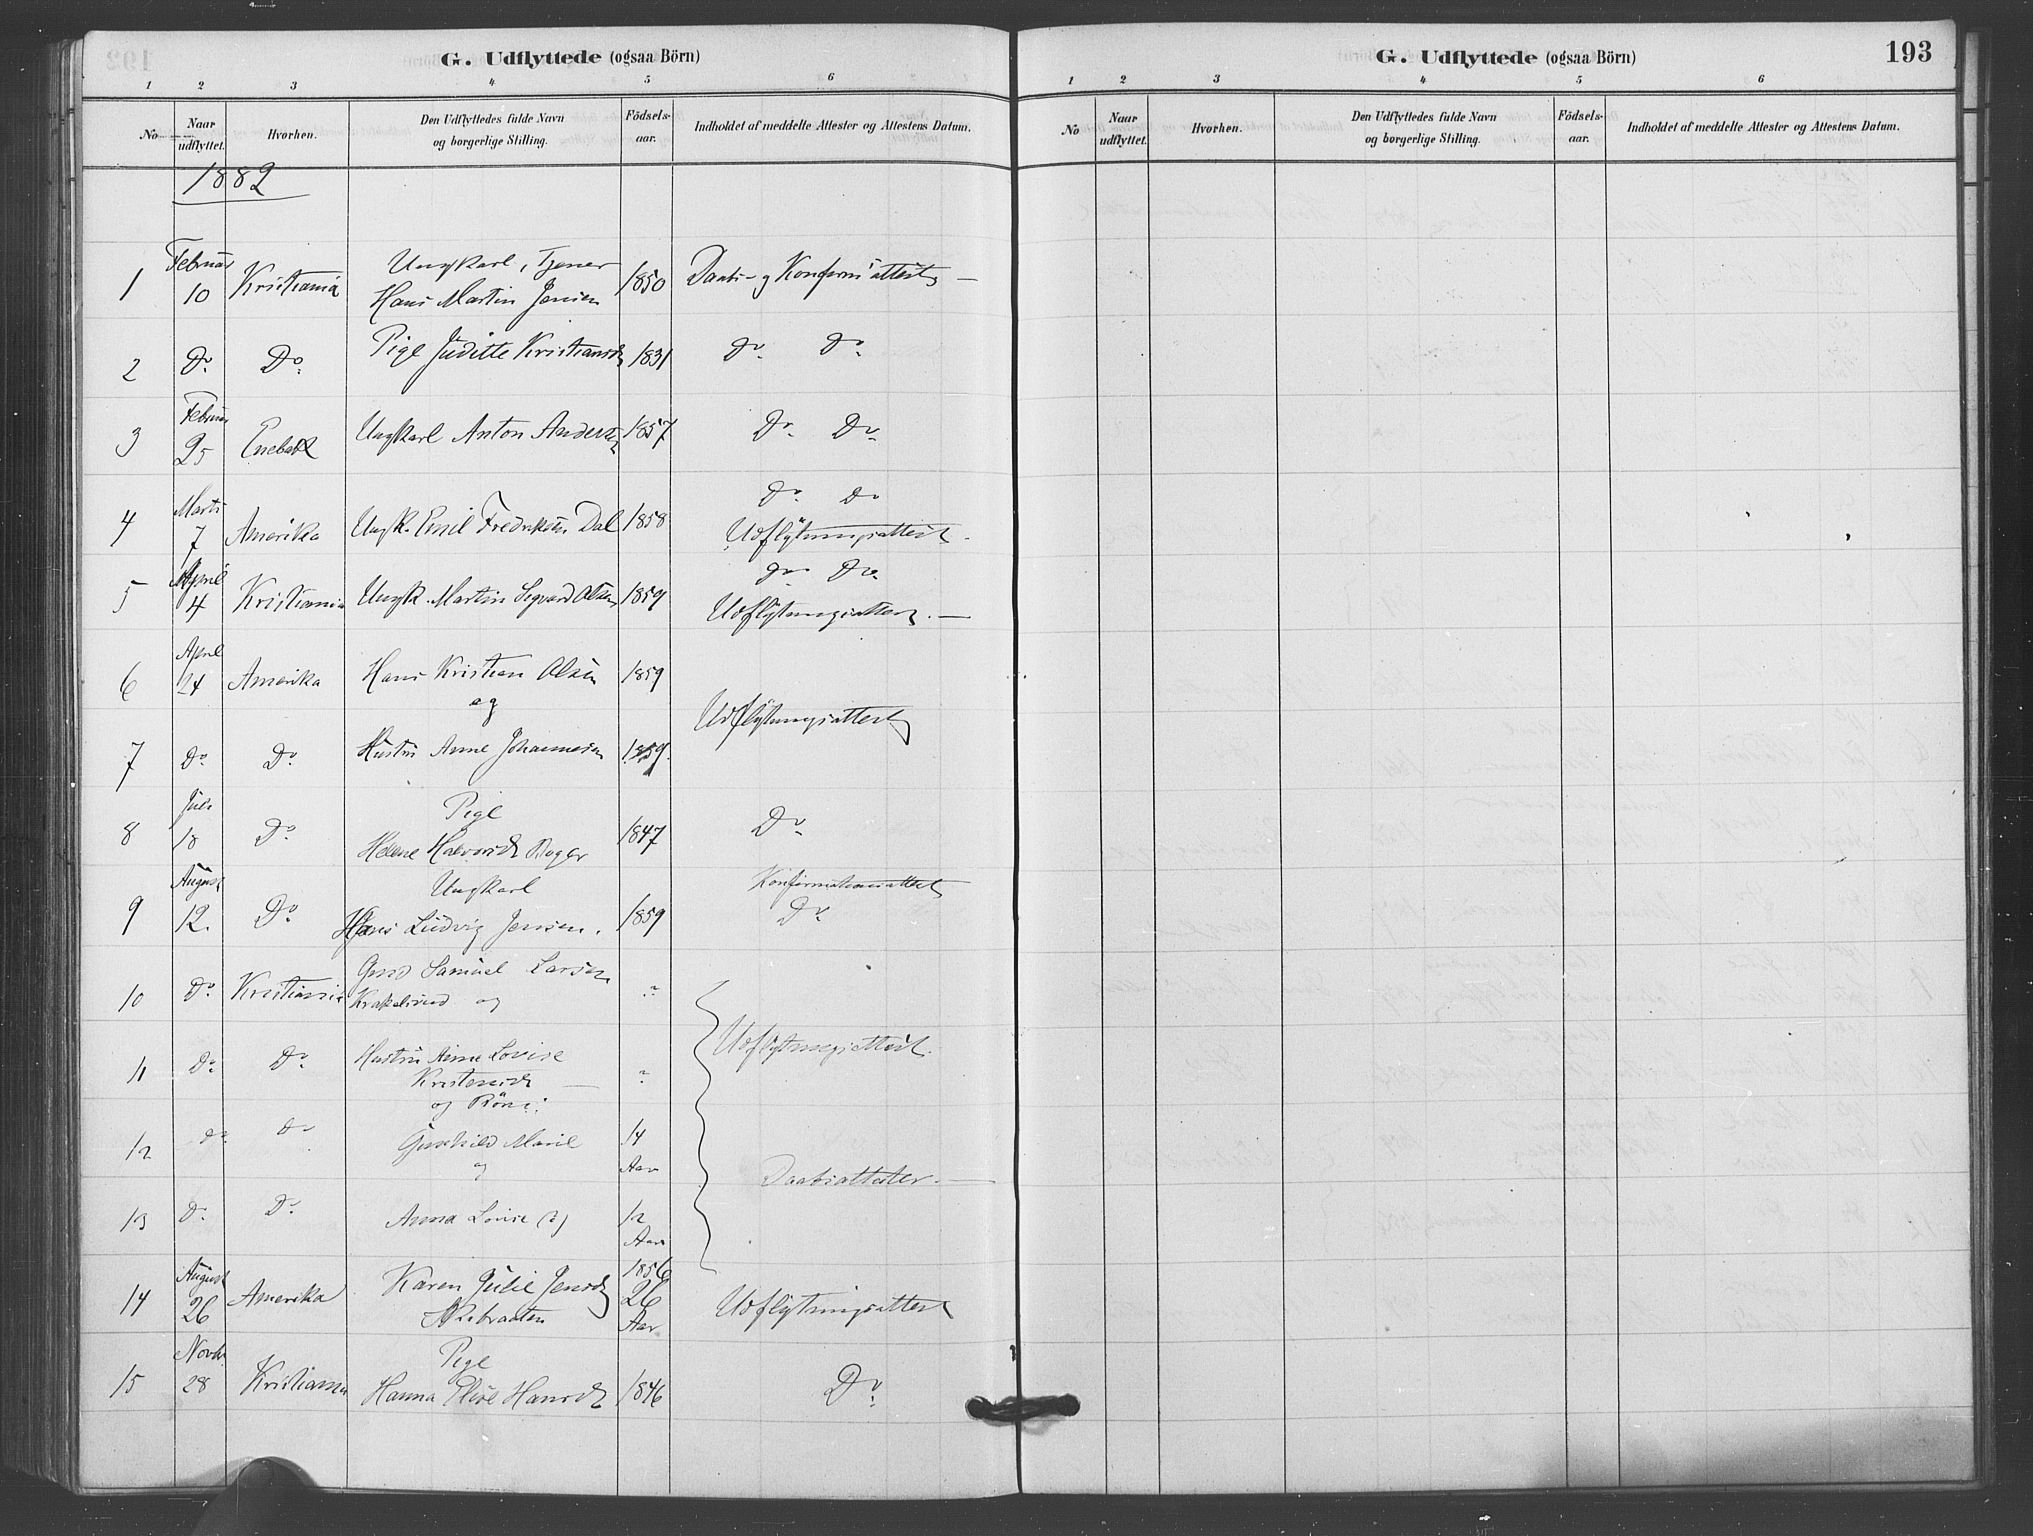 G. Udflyttede (ogsaa Börn)
1 2 3 4 5 6
No Naar udflyttet. Hvorhen. Den Udflyttedes fulde Navn og borgerlige Stilling. Fødsels-aar. Indholdet af meddelte Attester og Attestens Datum.
1882
1 Februar 10 Kristiania Ungkarl, Tjener Hans Martin Jensen 1850 Daabs- og Konfirm attest
2 Do Do Pige Juditte Kristiansd 1831 Do Do
3 Februar 25 Enebak Ungkarl Anton Andersen 1857 Do Do
4 Marts 7 Amerika Ungk. Emil Fredriksen Dal 1858 Do Do Udflytningsattest.
5 April 4 Kristiania Ungk. Martin Sigvard Olsen 1859 Do Do Udflytningsattest.
6 April 24 Amerika Hans Kristian Olsen 1859
og Udflytningsattest
7 Do Do Hustru Anne Johannesen 1859.
8 Juli 18 Do Pige Helene Halvorsd 1847 Do
9 August 12. Do Ungkarl Hans Ludvig Jensen. 1859 Konfirmationsattest Do
10 Do Kristiania Samuel Larsen Krakelsund og ?
11 Do Do Hustru Anne Lovise Kristensd ? Udflytningsattest.
og Börn:
12 Do Do Gunhild Marie 14 Aar
og Daabsattester.
13 Do Do Anna Lovise 12 Aar
14 August 26 Amerika Karen Julie Jensd Akebraaten 1856 26 Aar Udflytningsattest
15 Novbr 28 Kristiania Pige Hanna Elise Hansd 1846 Do
G. Udflyttede (ogsaa Börn) 193
1 2 3 4 5 6
No Naar udflyttet. Hvorhen. Den Udflyttedes fulde Navn og borgerlige Stilling. Fødsels-aar. Indholdet af meddelte Attester og Attestens Datum.